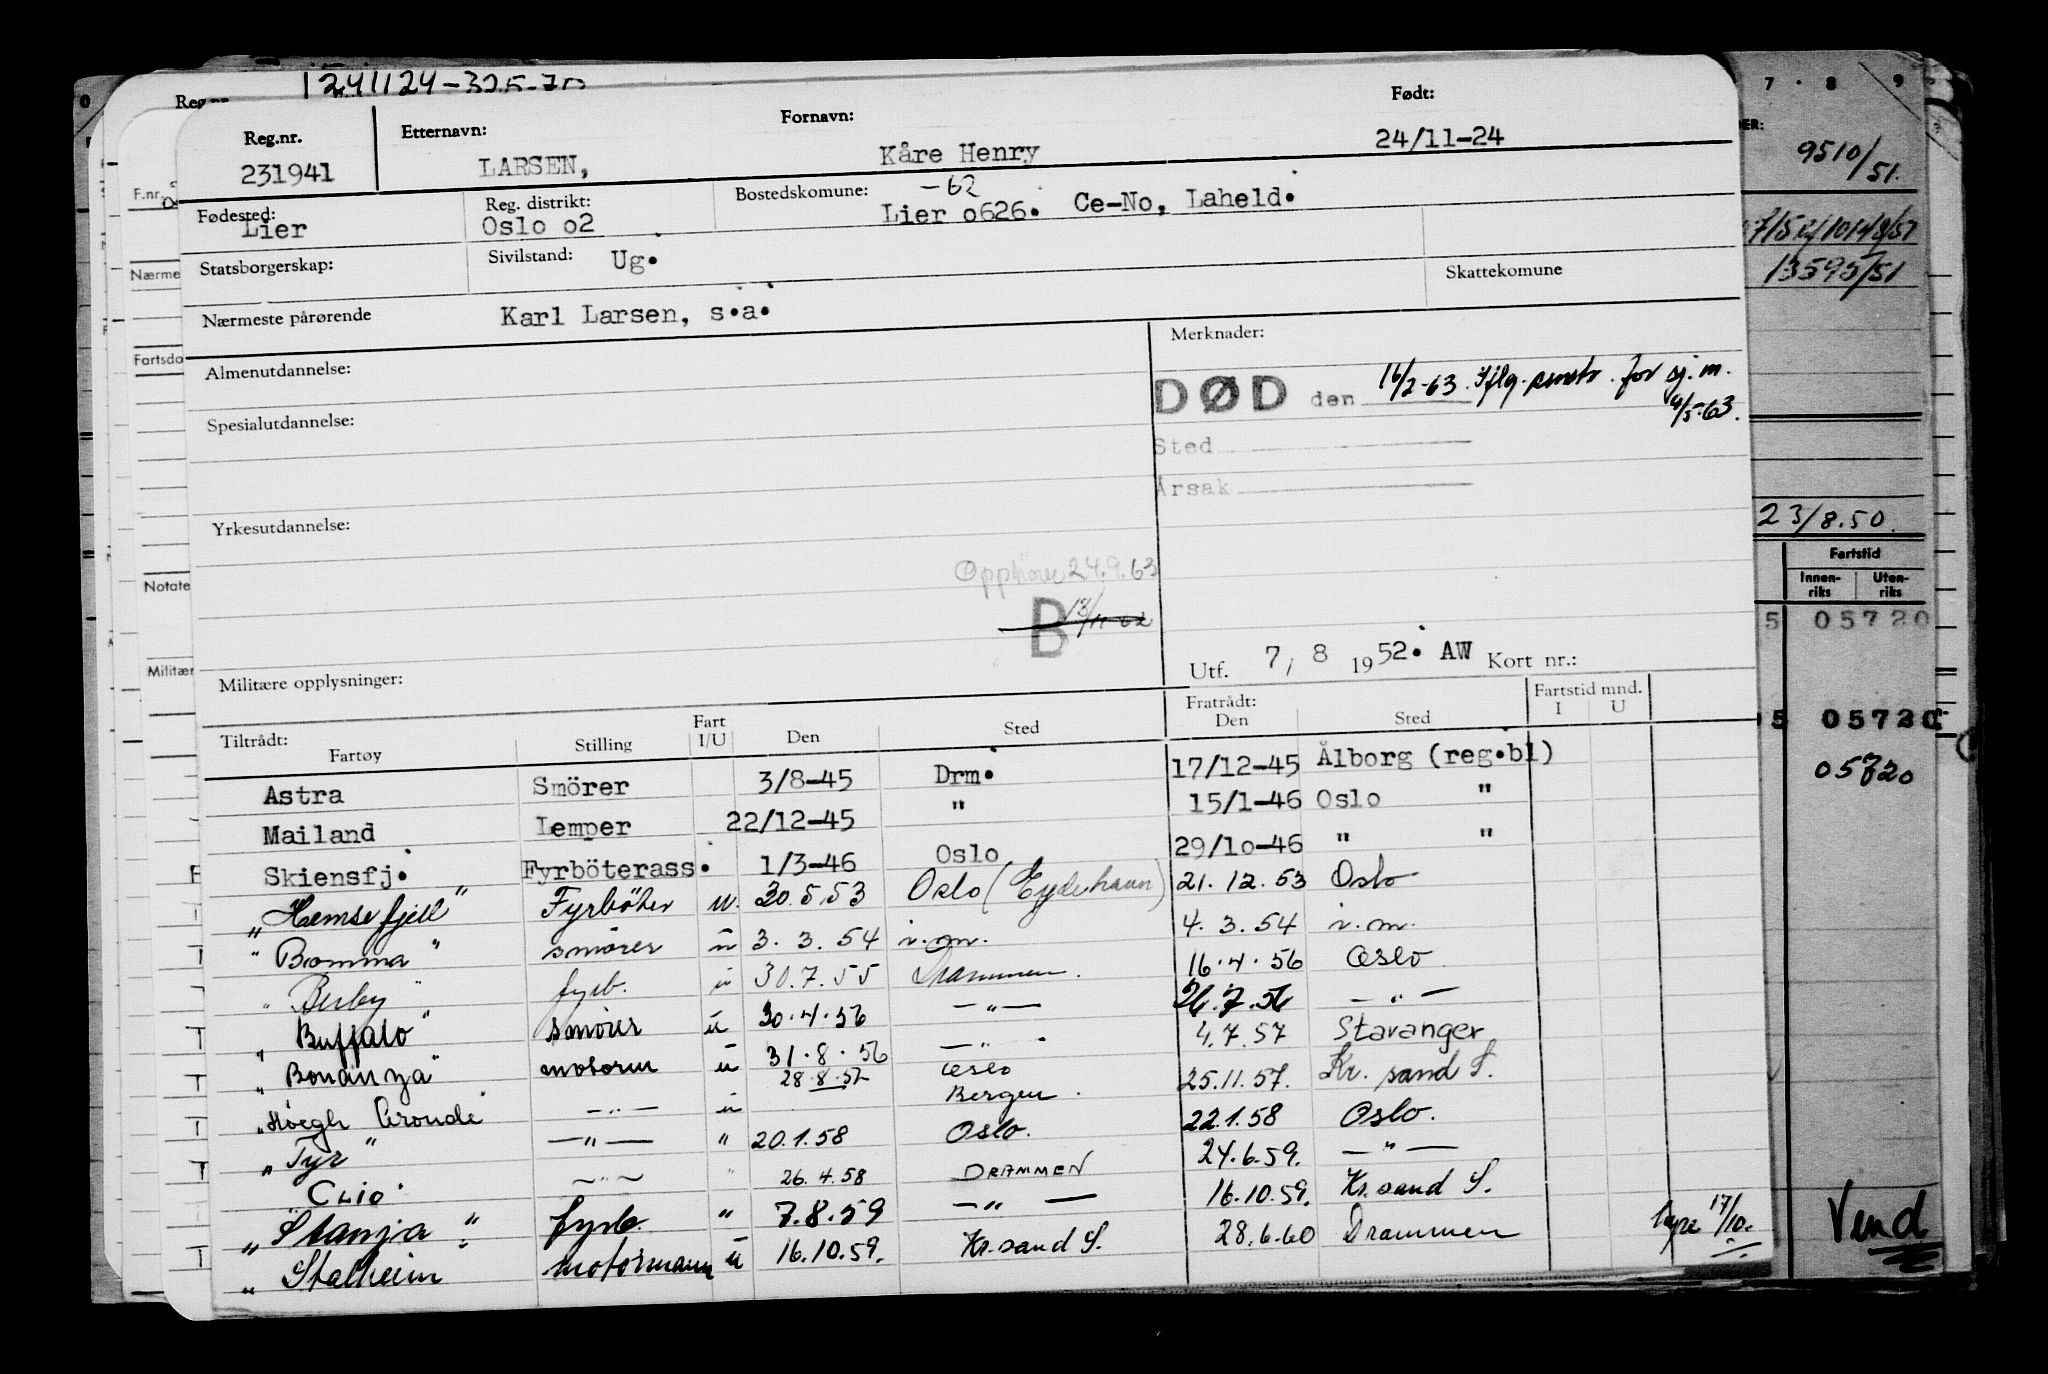 1241124-325-70
Reg.nr. Etternavn: Fornavn: Født:
231941 LARSEN, Kåre Henry 24/11-24
Fødested: Reg. distrikt: Bostedskomune: -62
Lier Oslo o2 Lier o626. Ce-No, Laheld.
Statsborgerskap: Sivilstand: Ug. Skattekomune
Nærmeste pårørende Karl Larsen, s.a.
Almenutdannelse: Merknader:
DØD den 16/2-63. Iflg. for sj.m.
4/5-63.
Spesialutdannelse: Sted
Årsak
Yrkesutdannelse:
Opphører 24.9.63
B 13/11-62
Militære opplysninger: Utf. 7/ 8 1952. AW Kort nr.:
Tiltrådt: Fart Fratrådt: Fartstid mnd.
Fartøy Stilling I/U Den Sted Den Sted I U
Astra Smörer 3/8-45 Drm. 17/12-45 Ålborg (reg.bl)
Mailand Lemper 22/12-45 " 15/1-46 Oslo "
Skiensfj. Fyrböterass. 1/3-46 Oslo 29/10-46 " "
"Hemsefjell" Fyrböter u. 30.5.53 Oslo (Eydehavn) 21.12.53 Oslo
"Bomma" smörer u 3.3.54 i.m. 4.3.54 i.m.
"Besby" fyrb. u 30.7.55 Drammen. 16.4.56 Oslo
"Buffalo" smörer u 30.4.56 -"- 26.7.56 -"-
"Bonanza" motorm u 31.8.56 -"- 4.7.57 Stavanger
"Höegh Aronde" -"- u 28.8.57 Oslo Bergen. 25.11.57. Kr.sand S.
"Tyr" -"- " 20.1.58 Oslo. 22.1.58 Oslo.
"Clio" -"- " 26.4.58 DRAMMEN 24.6.59. -"-
"Stanja" fyrb. " 7.8.59 -"- 16.10.59. Kr.sand S.
"Stalheim motormann u 16.10.59. Kr.sand S. 28.6.60 Drammen
17/10.
Reg.nr.
F.nr.
Nærme
Fartsda
Notate
Militær
7 · 8 9
9510/51.
13595/51
23/8.50.
Fartstid
Innen-riks Uten-riks
5 05720
5 05720
05720
Vend